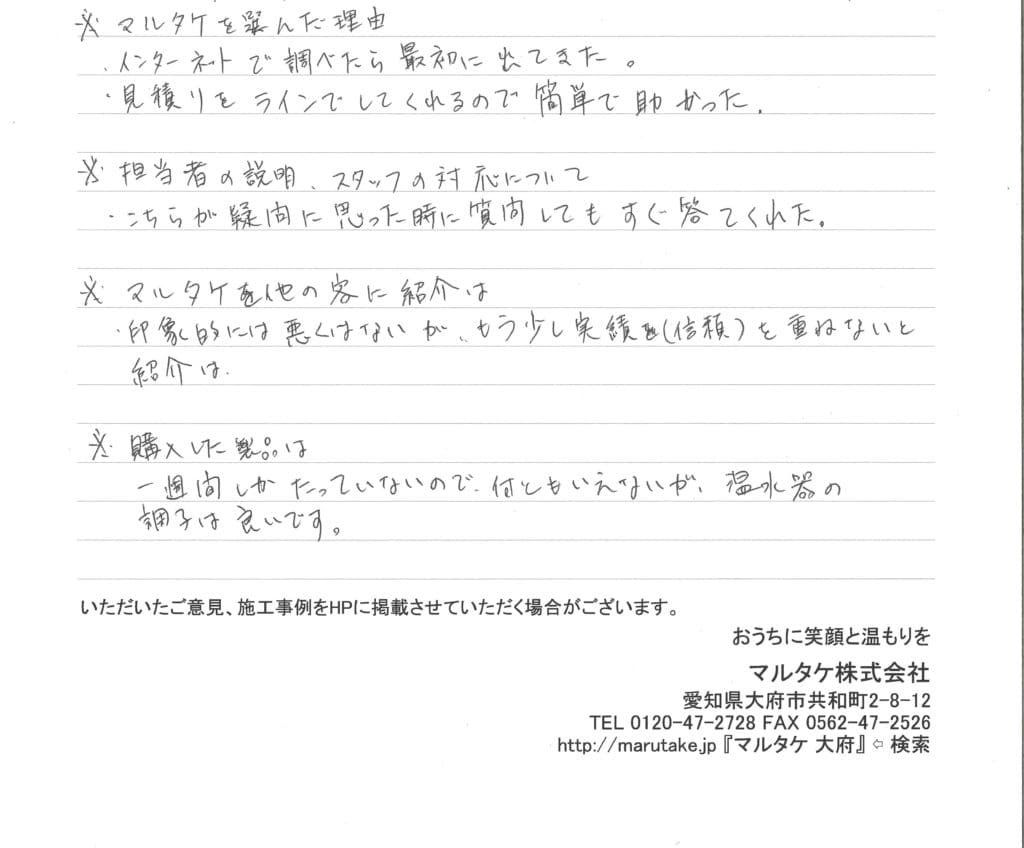 ※ マルタケを選んだ理由
・インターネットで調べたら最初に出てきた。
・見積りをラインでしてくれるので簡単で助かった.
※ 担当者の説明、スタッフの対応について
・こちらが疑問に思った時に質問してもすぐ答てくれた。
※ マルタケを他の客に紹介は
・印象的には悪くはないが、もう少し実績を(信頼)を重ねないと
紹介は.
※ 購入した製品は
一週間しかたっていないので、何ともいえないが、温水器の
調子は良いです。
いただいたご意見、施工事例をHPに掲載させていただく場合がございます。
おうちに笑顔と温もりを
マルタケ株式会社
愛知県大府市共和町2-8-12
TEL 0120-47-2728 FAX 0562-47-2526
http://marutake.jp『マルタケ 大府』⇦ 検索